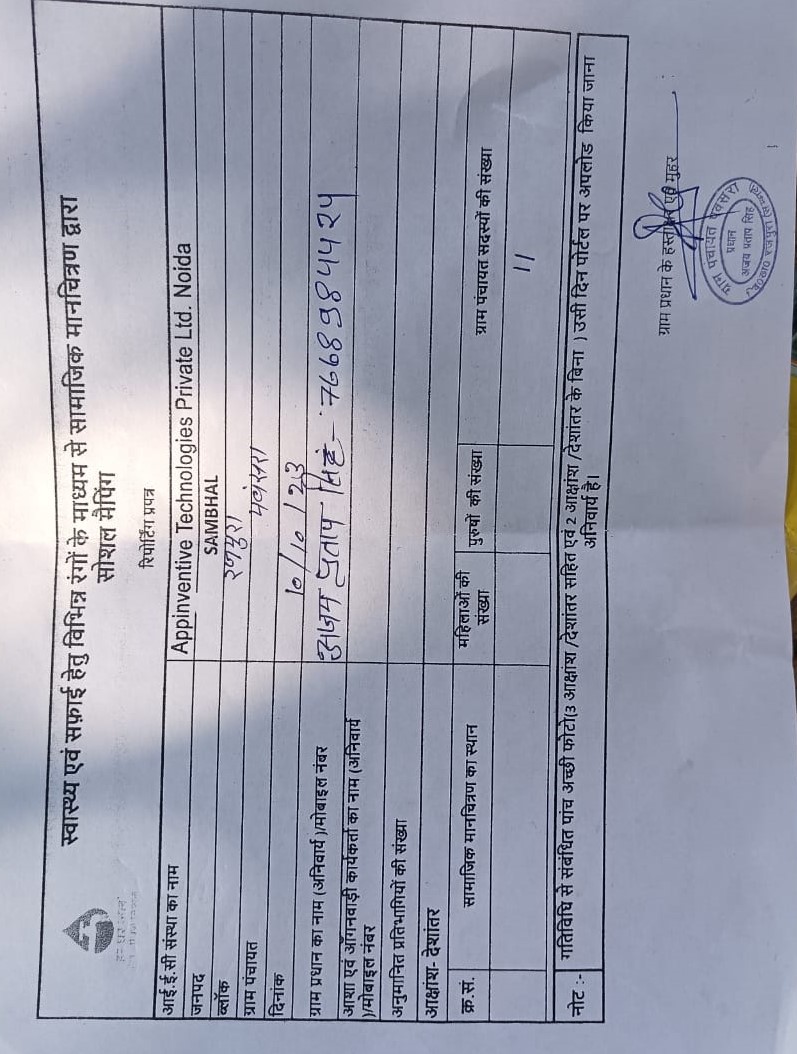 हर घर जल
स्वास्थ्य एवं सफ़ाई हेतु विभिन्न रंगों के माध्यम से सामाजिक मानचित्रण द्वारा
सोशल मैपिंग
रिपोर्टिंग प्रपत्र
आई.ई.सी संस्था का नाम Appinventive Technologies Private Ltd. Noida
जनपद SAMBHAL
ब्लॉक रजपुरा
ग्राम पंचायत
दिनांक 10/10/23
ग्राम प्रधान का नाम (अनिवार्य )/मोबाइल नंबर अजय प्रताप सिंह - 7668984424
आशा एवं आँगनवाड़ी कार्यकर्ता का नाम (अनिवार्य
)/मोबाइल नंबर
अनुमानित प्रतिभागियों की संख्या
आक्षांश- देशांतर
क्र.सं. सामाजिक मानचित्रण का स्थान महिलाओं की संख्या पुरुषों की संख्या ग्राम पंचायत सदस्यों की संख्या
11
नोट :- गतिविधि से संबंधित पांच अच्छी फोटो(3 आक्षांश /देशांतर सहित एवं 2 आक्षांश /देशांतर के बिना ) उसी दिन पोर्टल पर अपलोड किया जाना
अनिवार्य है।
ग्राम प्रधान के हस्ताक्षर एवं मुहर
ग्राम पंचायत
प्रधान
अजय प्रताप सिंह